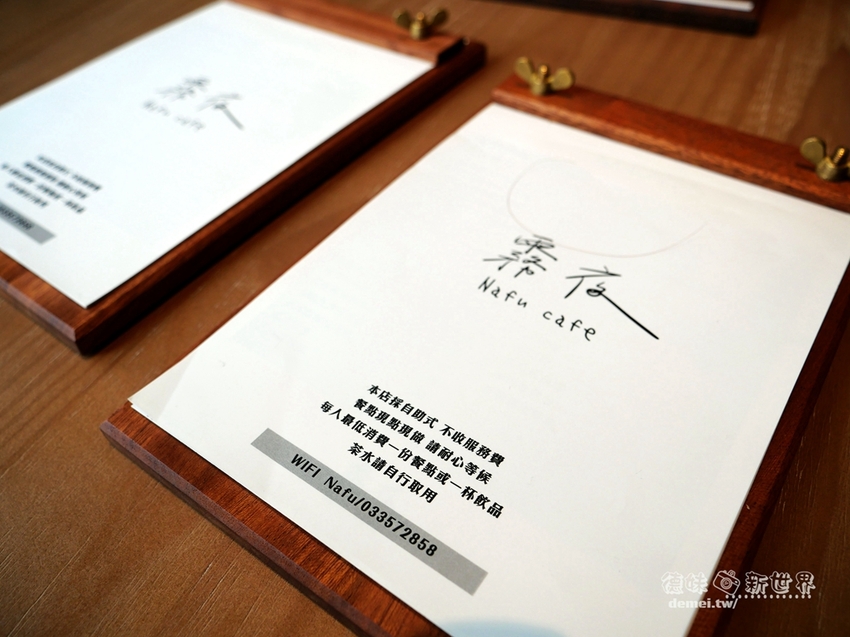 霧夜
Nafu cafe
本店採自助式 不收服務費
餐點現點現做 請耐心等候
每人最低消費一份餐點或一杯飲品
茶水請自行取用
WIFI Nafu/033572858
霧夜
Nafu cafe
德味 新世界
demei.tw/